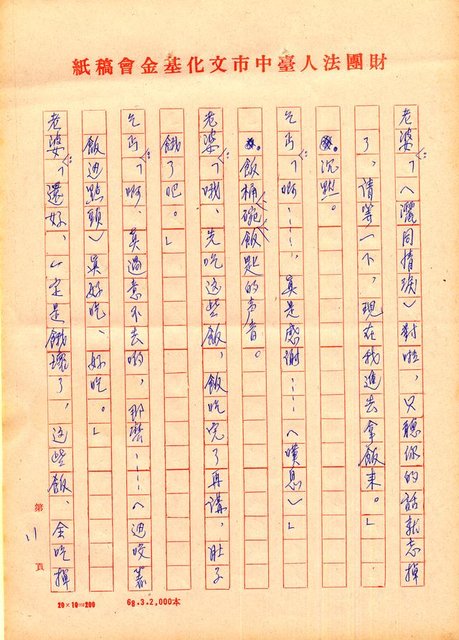 財團法人臺中市文化基金會稿紙
老婆：「（灑同情淚）對啦，只聽你的話就忘掉
了，請等一下，現在我進去拿飯來。」
沉默。
乞丐：「啊……，真是感谢……（嘆息）」
飯桶、碗、飯匙的声音。
老婆：「哦、先吃这些飯，飯吃完了再講，肚子
餓了吧。」
乞丐：「啊、真過意不去喲，那麼……（迴咬
飯迴點頭）真好吃、好吃。」
老婆：「還好、一定是餓壞了，这些飯、全吃掉
第 11 頁
20×10=200
68.3.2,000本